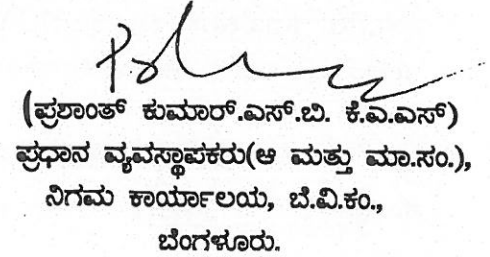 (ಪ್ರಶಾಂತ್ ಕುಮಾರ್.ಎಸ್.ಬಿ. ಕೆ.ಎ.ಎಸ್)
ಪ್ರಧಾನ ವ್ಯವಸ್ಥಾಪಕರು(ಆ ಮತ್ತು ಮಾ.ಸಂ.),
ನಿಗಮ ಕಾರ್ಯಾಲಯ, ಬೆ.ವಿ.ಕಂ.,
ಬೆಂಗಳೂರು.